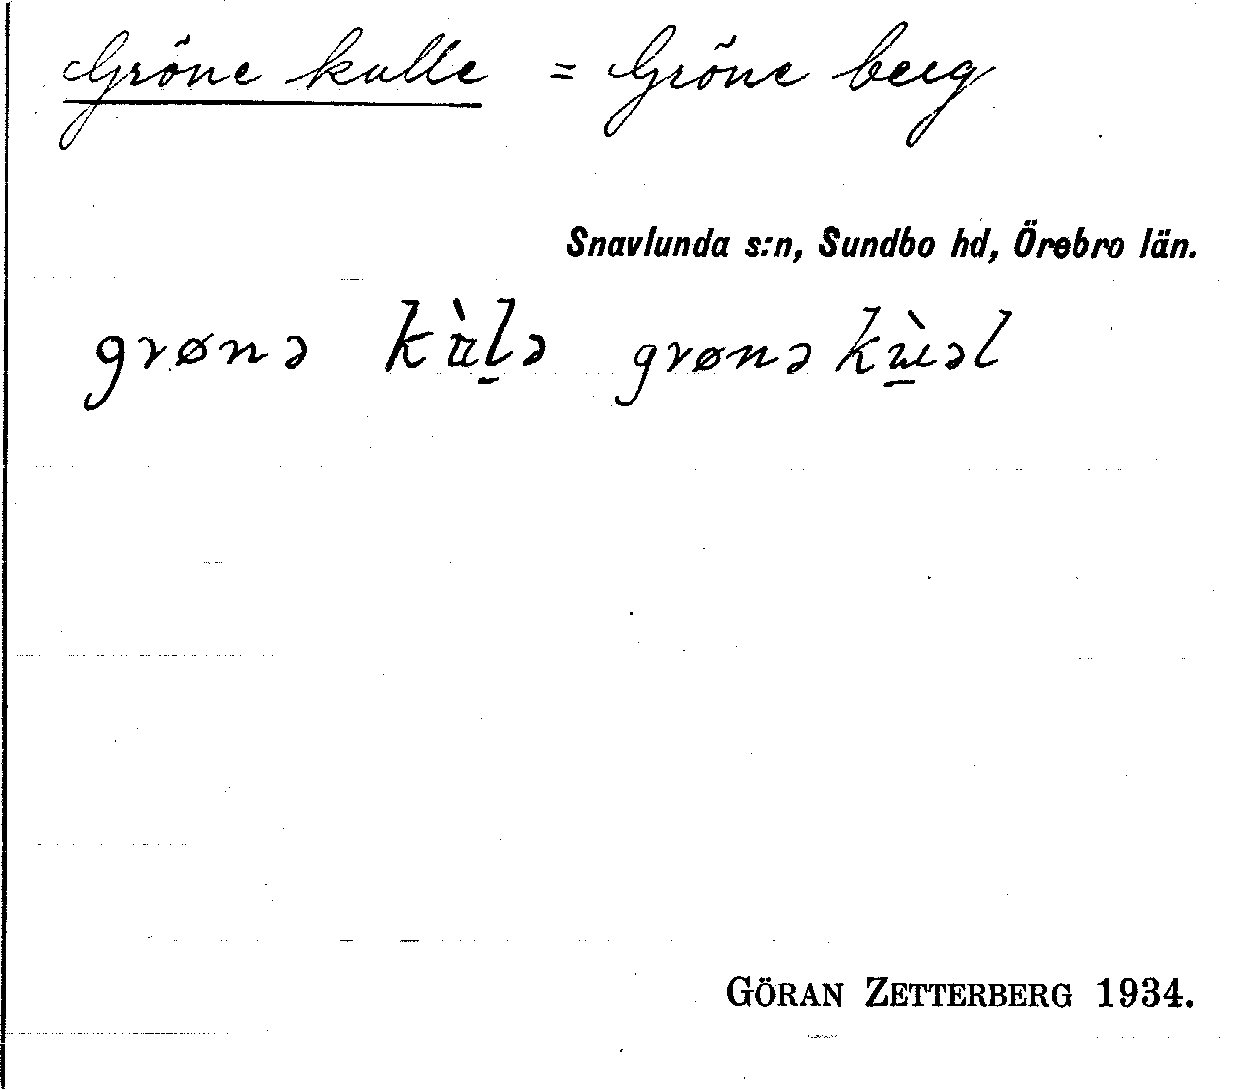 Gröne kulle = Gröne berg
Snavlunda s:n, Sundbo hd, Örebro län.
grønə ku̇̀l̠ə grønə kɯ̠̀əl
GÖRAN ZETTERBERG 1934.